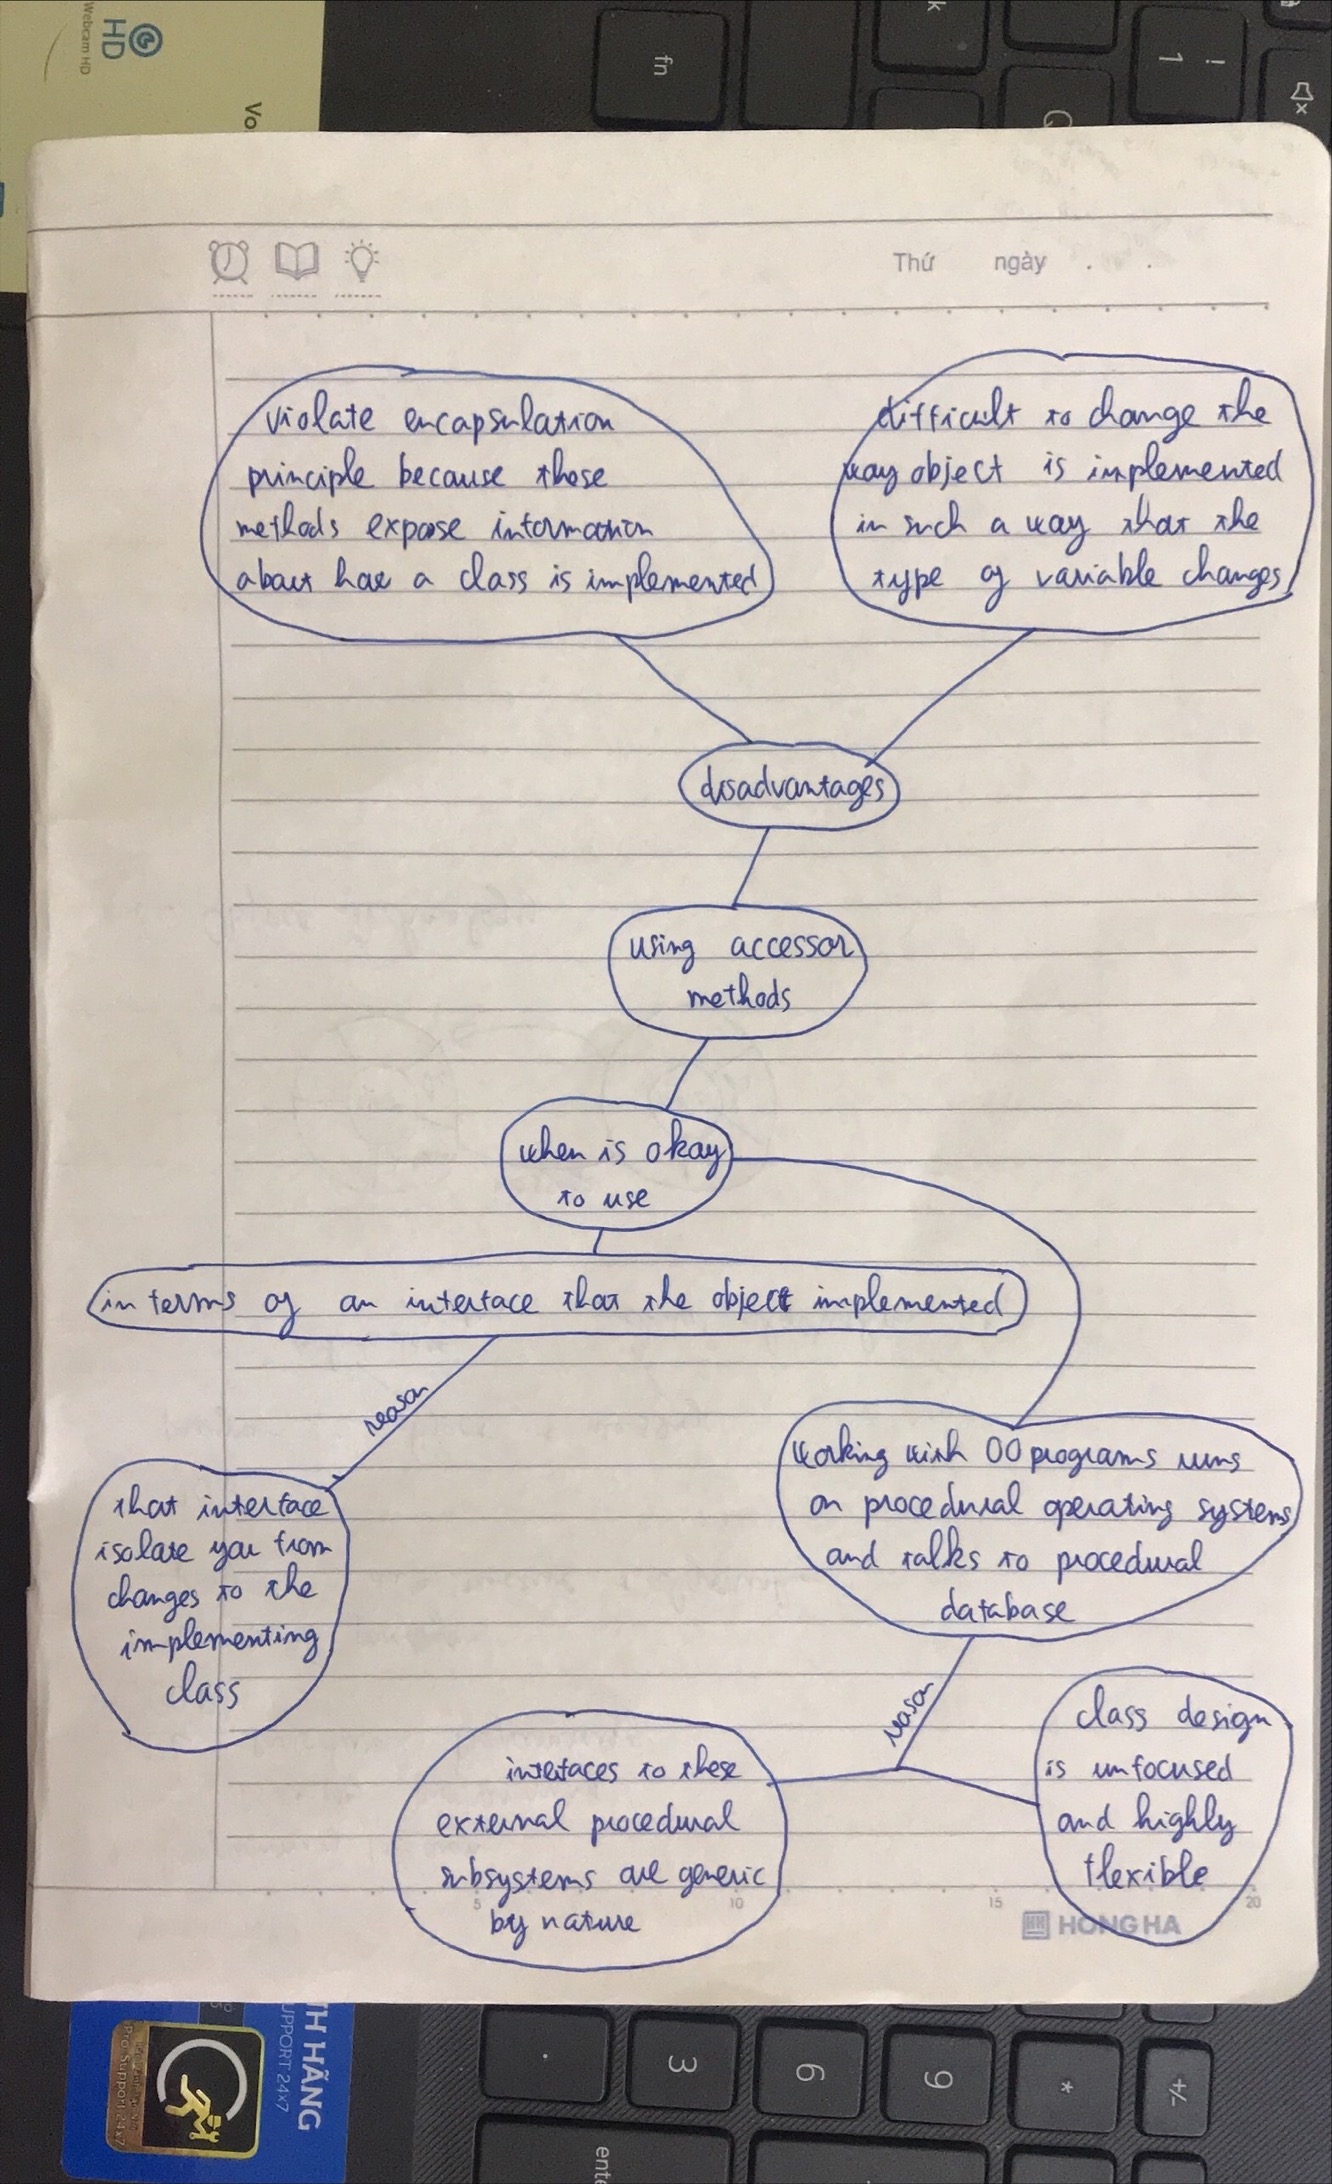 HD
Webcam HD
Vo
fn
k
G
!
1
Thứ ngày . .
violate encapsulation
principle because these
methods expose information
about how a class is implemented
difficult to change the
way object is implemented
in such a way that the
type of variable changes
disadvantages
using accessor
methods
when is okay
to use
in terms of an interface that the object implemented
reason
that interface
isolate you from
changes to the
implementing
class
working with OO programs runs
on procedural operating systems
and talks to procedural
database
reason
intefaces to these
external procedural
subsystems are generic
by nature
class design
is unfocused
and highly
flexible
5 10 15 20
HONG HA
TH HÃNG
UPPORT 24x7
Pro Support 24x7
.
3
6
9
*
+/-
ente